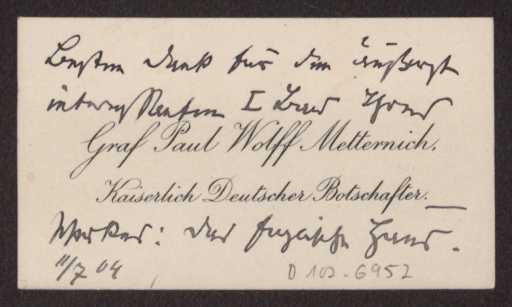 Besten Dank für den äußerst
interessanten I Band Ihres
Graf Paul Wolff Metternich.
Kaiserlich Deutscher Botschafter.
Werkes: Das englische Haus.
11/7 04
D 102-6952